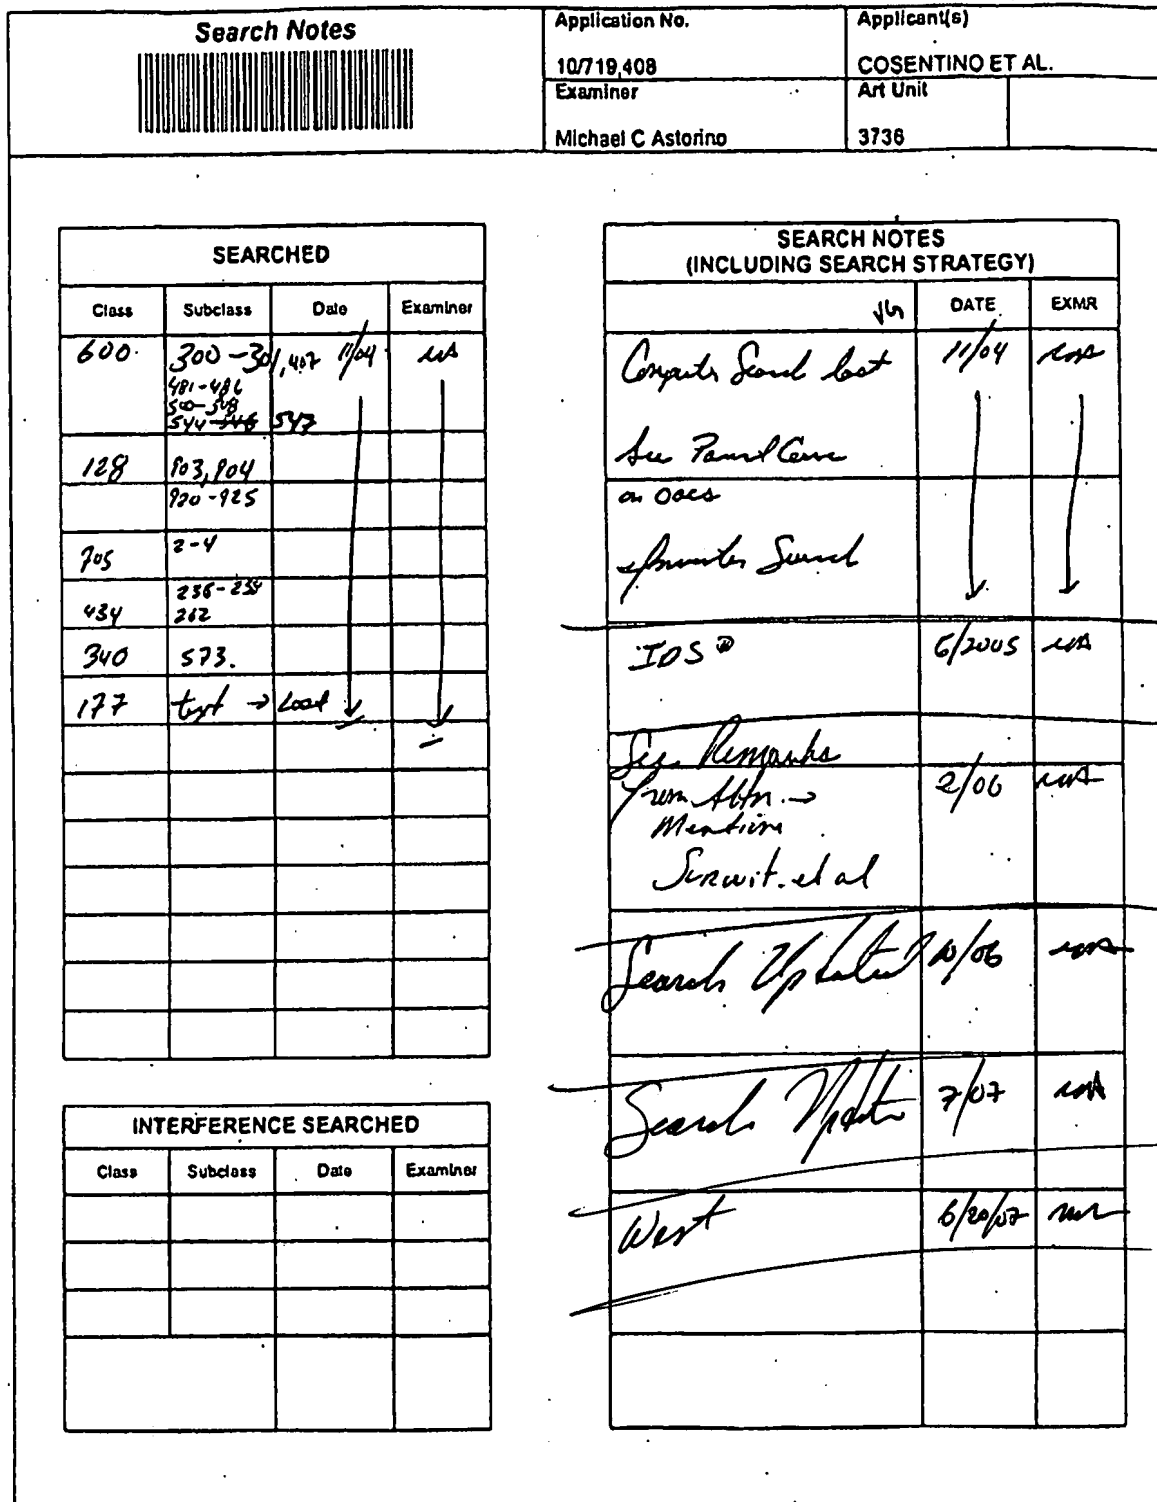 Search Notes
Application No.
10/719,408
Applicant(s)
COSENTINO ET AL.
Examiner
Michael C Astorino
Art Unit
3736
SEARCHED
Class Subclass Date Examiner
600 300-301, 407 11/04
481-486
500-508
544-546 547
128 903, 904
920-925
705 2-4
434 236-238
262
340 573.
177 text → Load
INTERFERENCE SEARCHED
Class Subclass Date Examiner
SEARCH NOTES
(INCLUDING SEARCH STRATEGY)
DATE EXMR
Computer Search 11/04
See
on OACS
Search
IDS 6/2005
See Remarks
from Attn. → 2/06
Mention
Surwit. et al
Search Updated 10/06
Search Update 7/07
West 6/20/07